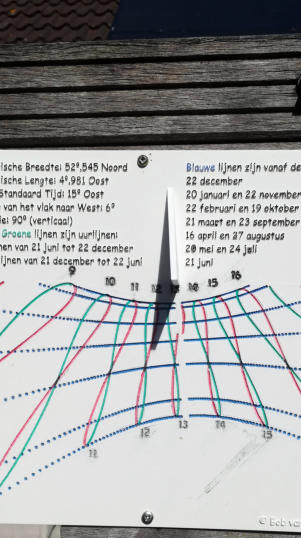 ische Breedte: 52°,545 Noord
ische Lengte: 4°,981 Oost
Standaard Tijd: 15° Oost
van het vlak naar West: 6°
ie: 90° (verticaal)
Groene lijnen zijn uurlijnen:
nen van 21 juni tot 22 december
lijnen van 21 december tot 22 juni
Blauwe lijnen zijn vanaf de
22 december
20 januari en 22 november
22 februari en 19 oktober
21 maart en 23 september
16 april en 27 augustus
20 mei en 24 juli
21 juni
9 10 11 12 13 14 15 16
11 12 13 14 15
© Bob va